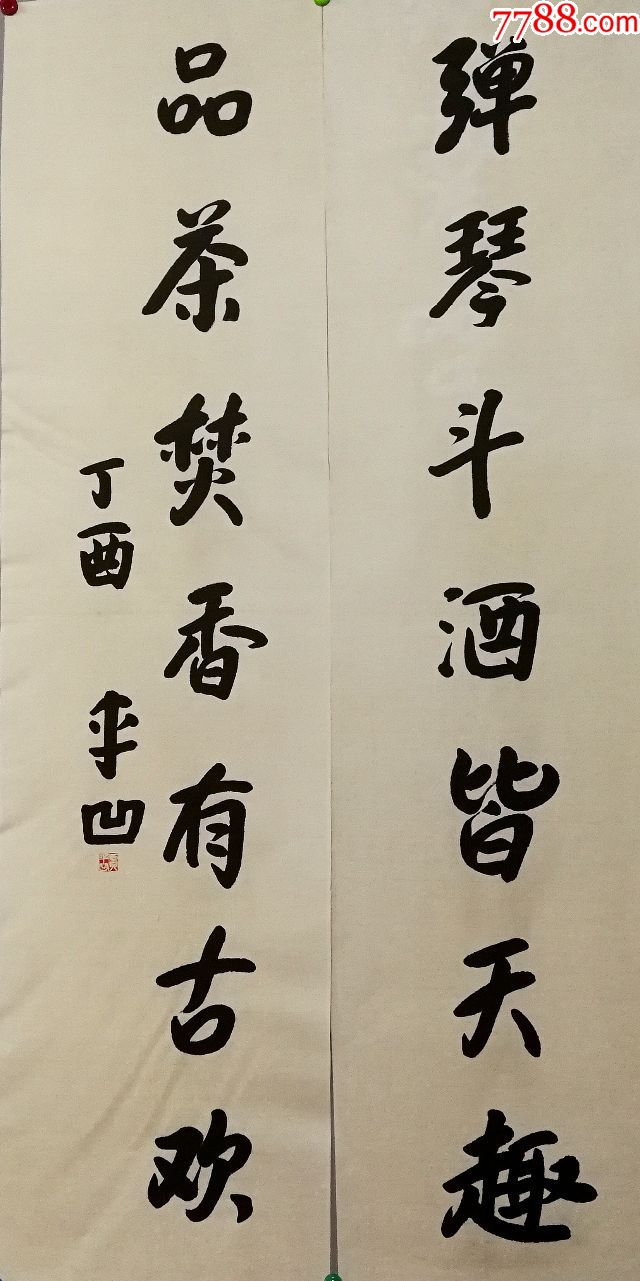 7788.com
弹琴斗酒皆天趣
品茶焚香有古欢
丁酉 平凹